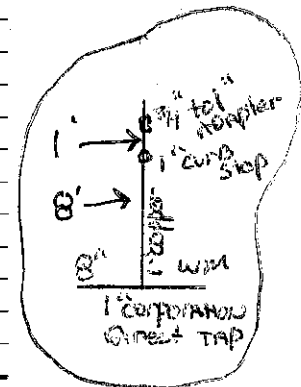 3/4" to 1"
ADAPTER
1'
1" CURB
STOP
8'
1" COPPER
8" WM
1" CORPORATION
DIRECT TAP